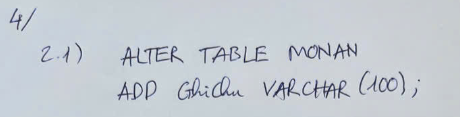 4/
2.1) ALTER TABLE MONAN
ADD Ghichu VARCHAR (100);